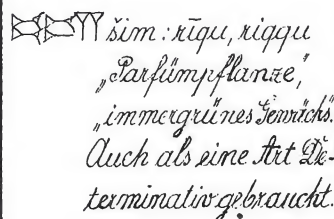 šim : rīqu, riqqu
„Parfümpflanze“,
„immergrünes Gewächs“.
Auch als eine Art De-
terminativ gebraucht.